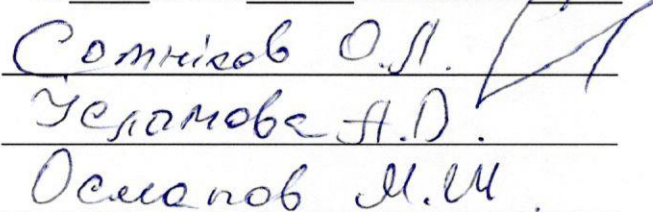 Сотніков О.Л.
Ісламова А.Д.
Османов М.Ш.